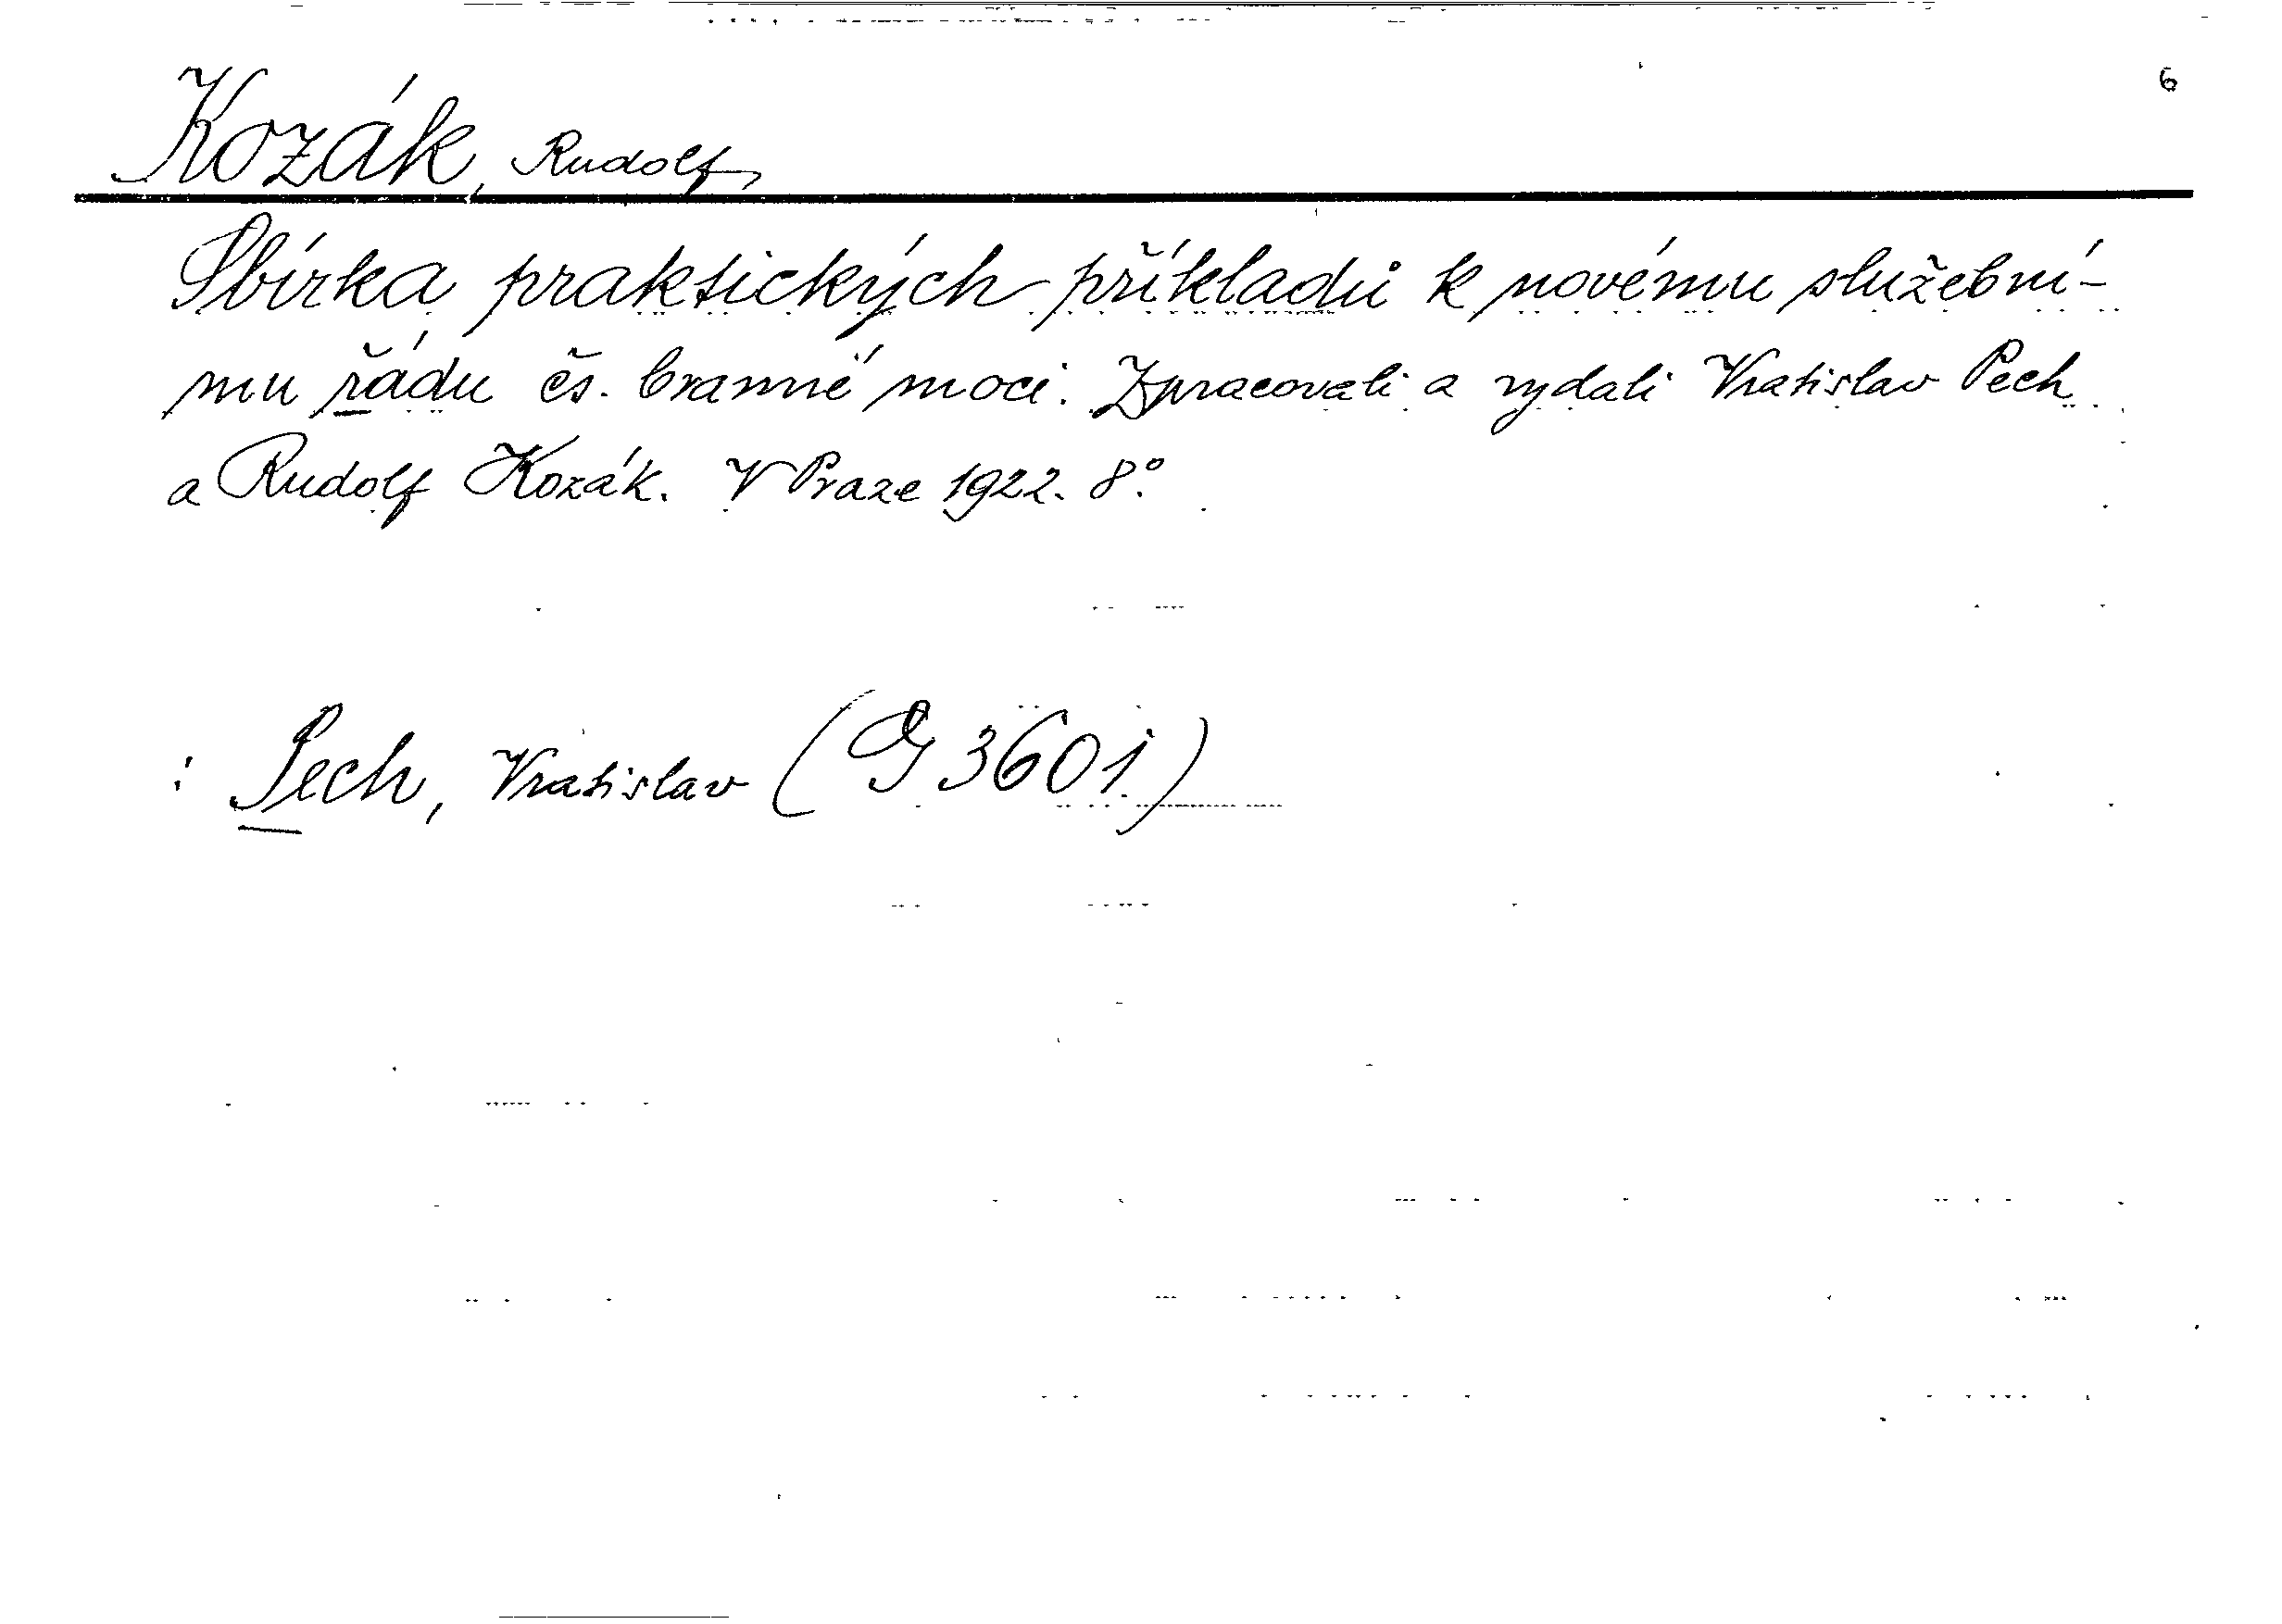 6
Kozák, Rudolf,
Sbírka praktických příkladů k novému služební-
mu řádu čs. branné moci. Zpracovali a vydali Vratislav Pech
a Rudolf Kozák. V Praze 1922. 8°.
: Pech, Vratislav (G 3601.)